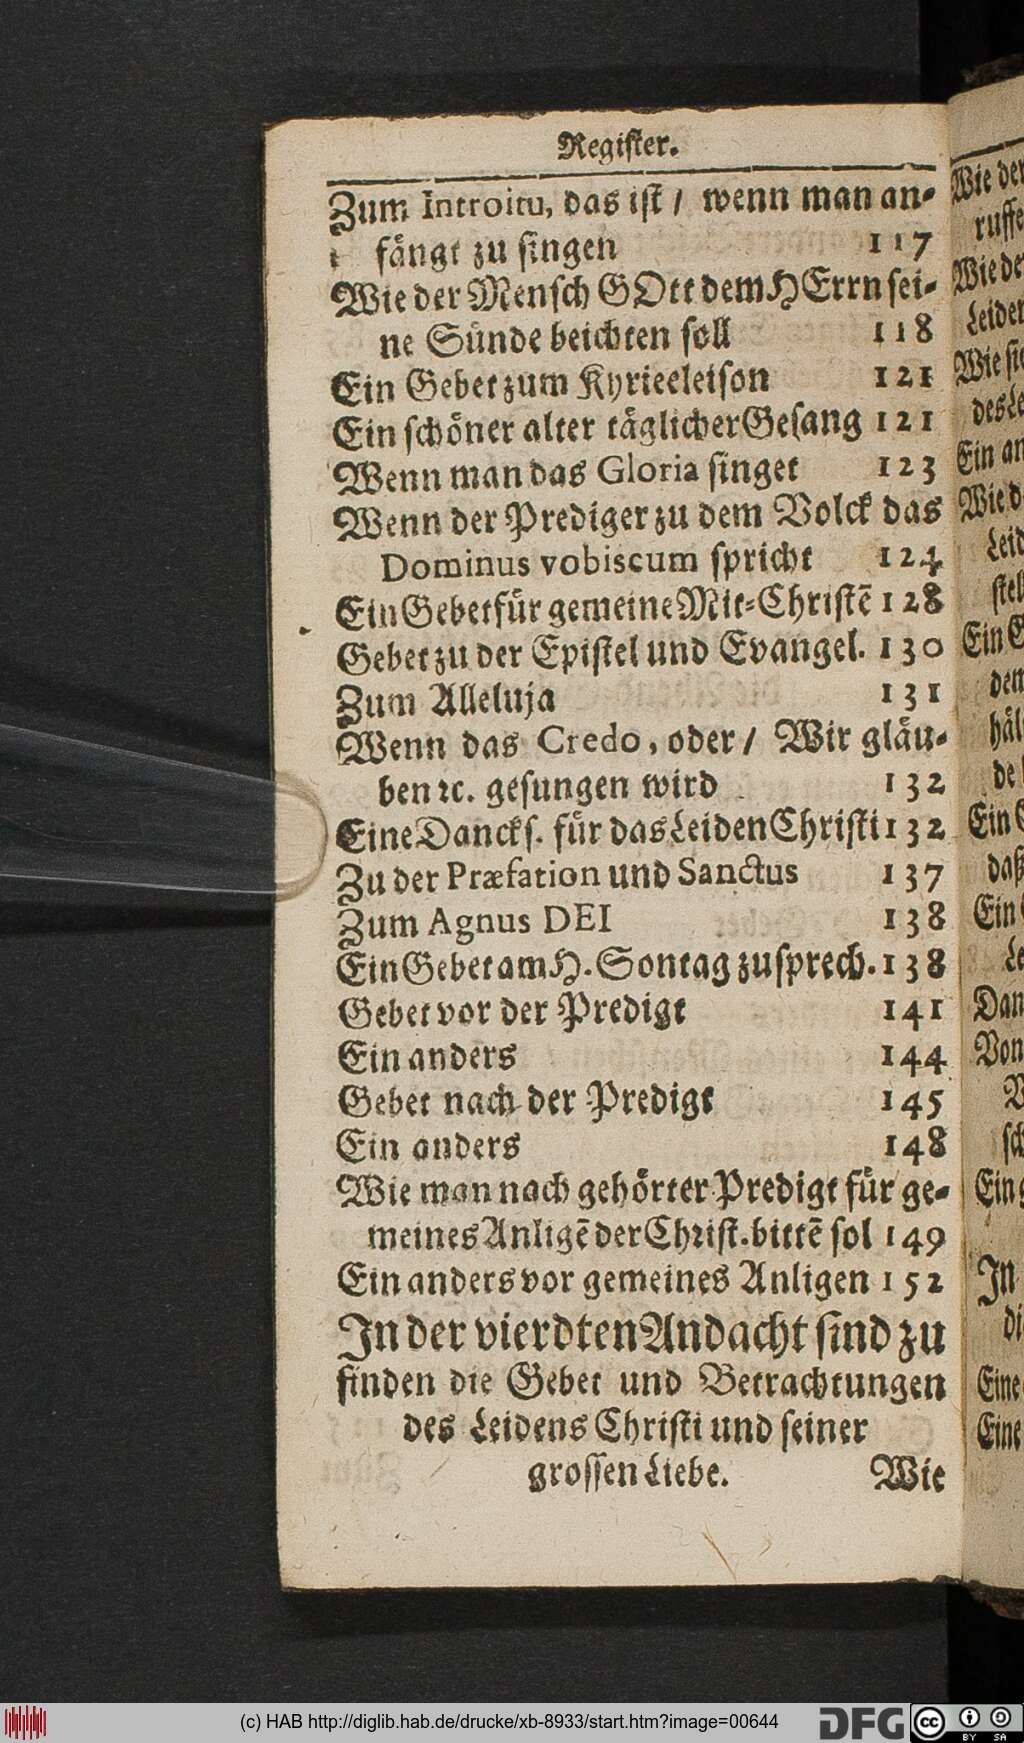 Register.
Zum Introitu, das ist / wenn man an-
fängt zu singen 117
Wie der Mensch GOtt dem HErrn sei-
ne Sünde beichten soll 118
Ein Gebet zum Kyrieeleison 121
Ein schöner alter täglicher Gesang 121
Wenn man das Gloria singet 123
Wenn der Prediger zu dem Volck das
Dominus vobiscum spricht 124
Ein Gebet für gemeine Mit-Christē 128
Gebet zu der Epistel und Evangel. 130
Zum Alleluja 131
Wenn das Credo, oder / Wir gläu-
ben ꝛc. gesungen wird 132
Eine Dancks. für das Leiden Christi 132
Zu der Præfation und Sanctus 137
Zum Agnus DEI 138
Ein Gebet am H. Sontag zu sprech. 138
Gebet vor der Predigt 141
Ein anders 144
Gebet nach der Predigt 145
Ein anders 148
Wie man nach gehörter Predigt für ge-
meines Anligē der Christ. bittē sol 149
Ein anders vor gemeines Anligen 152
In der vierdten Andacht sind zu
finden die Gebet und Betrachtungen
des Leidens Christi und seiner
grossen Liebe. Wie
Wie der
ruffe
Wie de
Leiden
Wie sie
des Le
Ein an
Wie d
Leid
stel
Ein G
dem
häl
de
Ein
daß
Ein
Le
Dan
Von
sch
Ein g
In
di
Eine
Eine
(c) HAB http://diglib.hab.de/drucke/xb-8933/start.htm?image=00644
DFG
cc BY SA